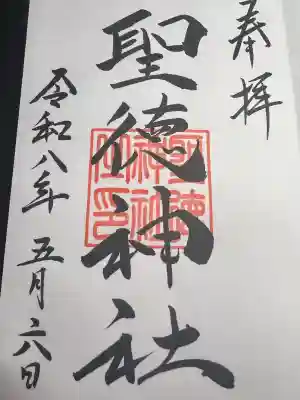 奉拝
聖徳神社
聖徳神社之印
令和八年五月六日